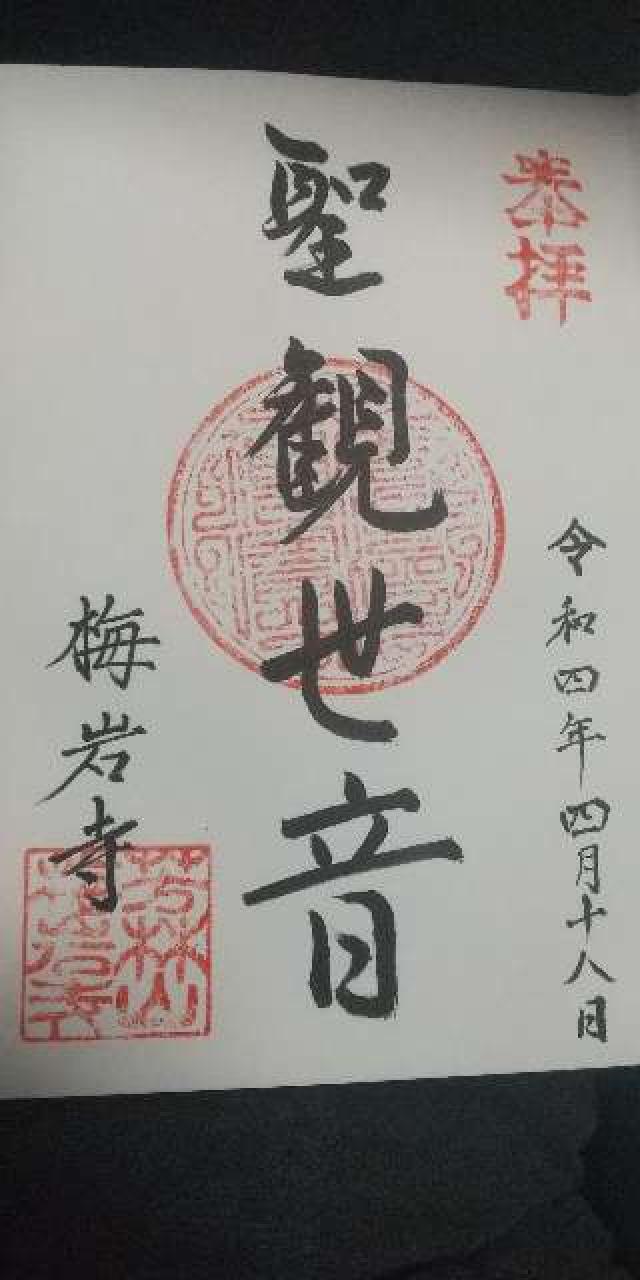 奉拝
令和四年四月十八日
聖観世音
梅岩寺